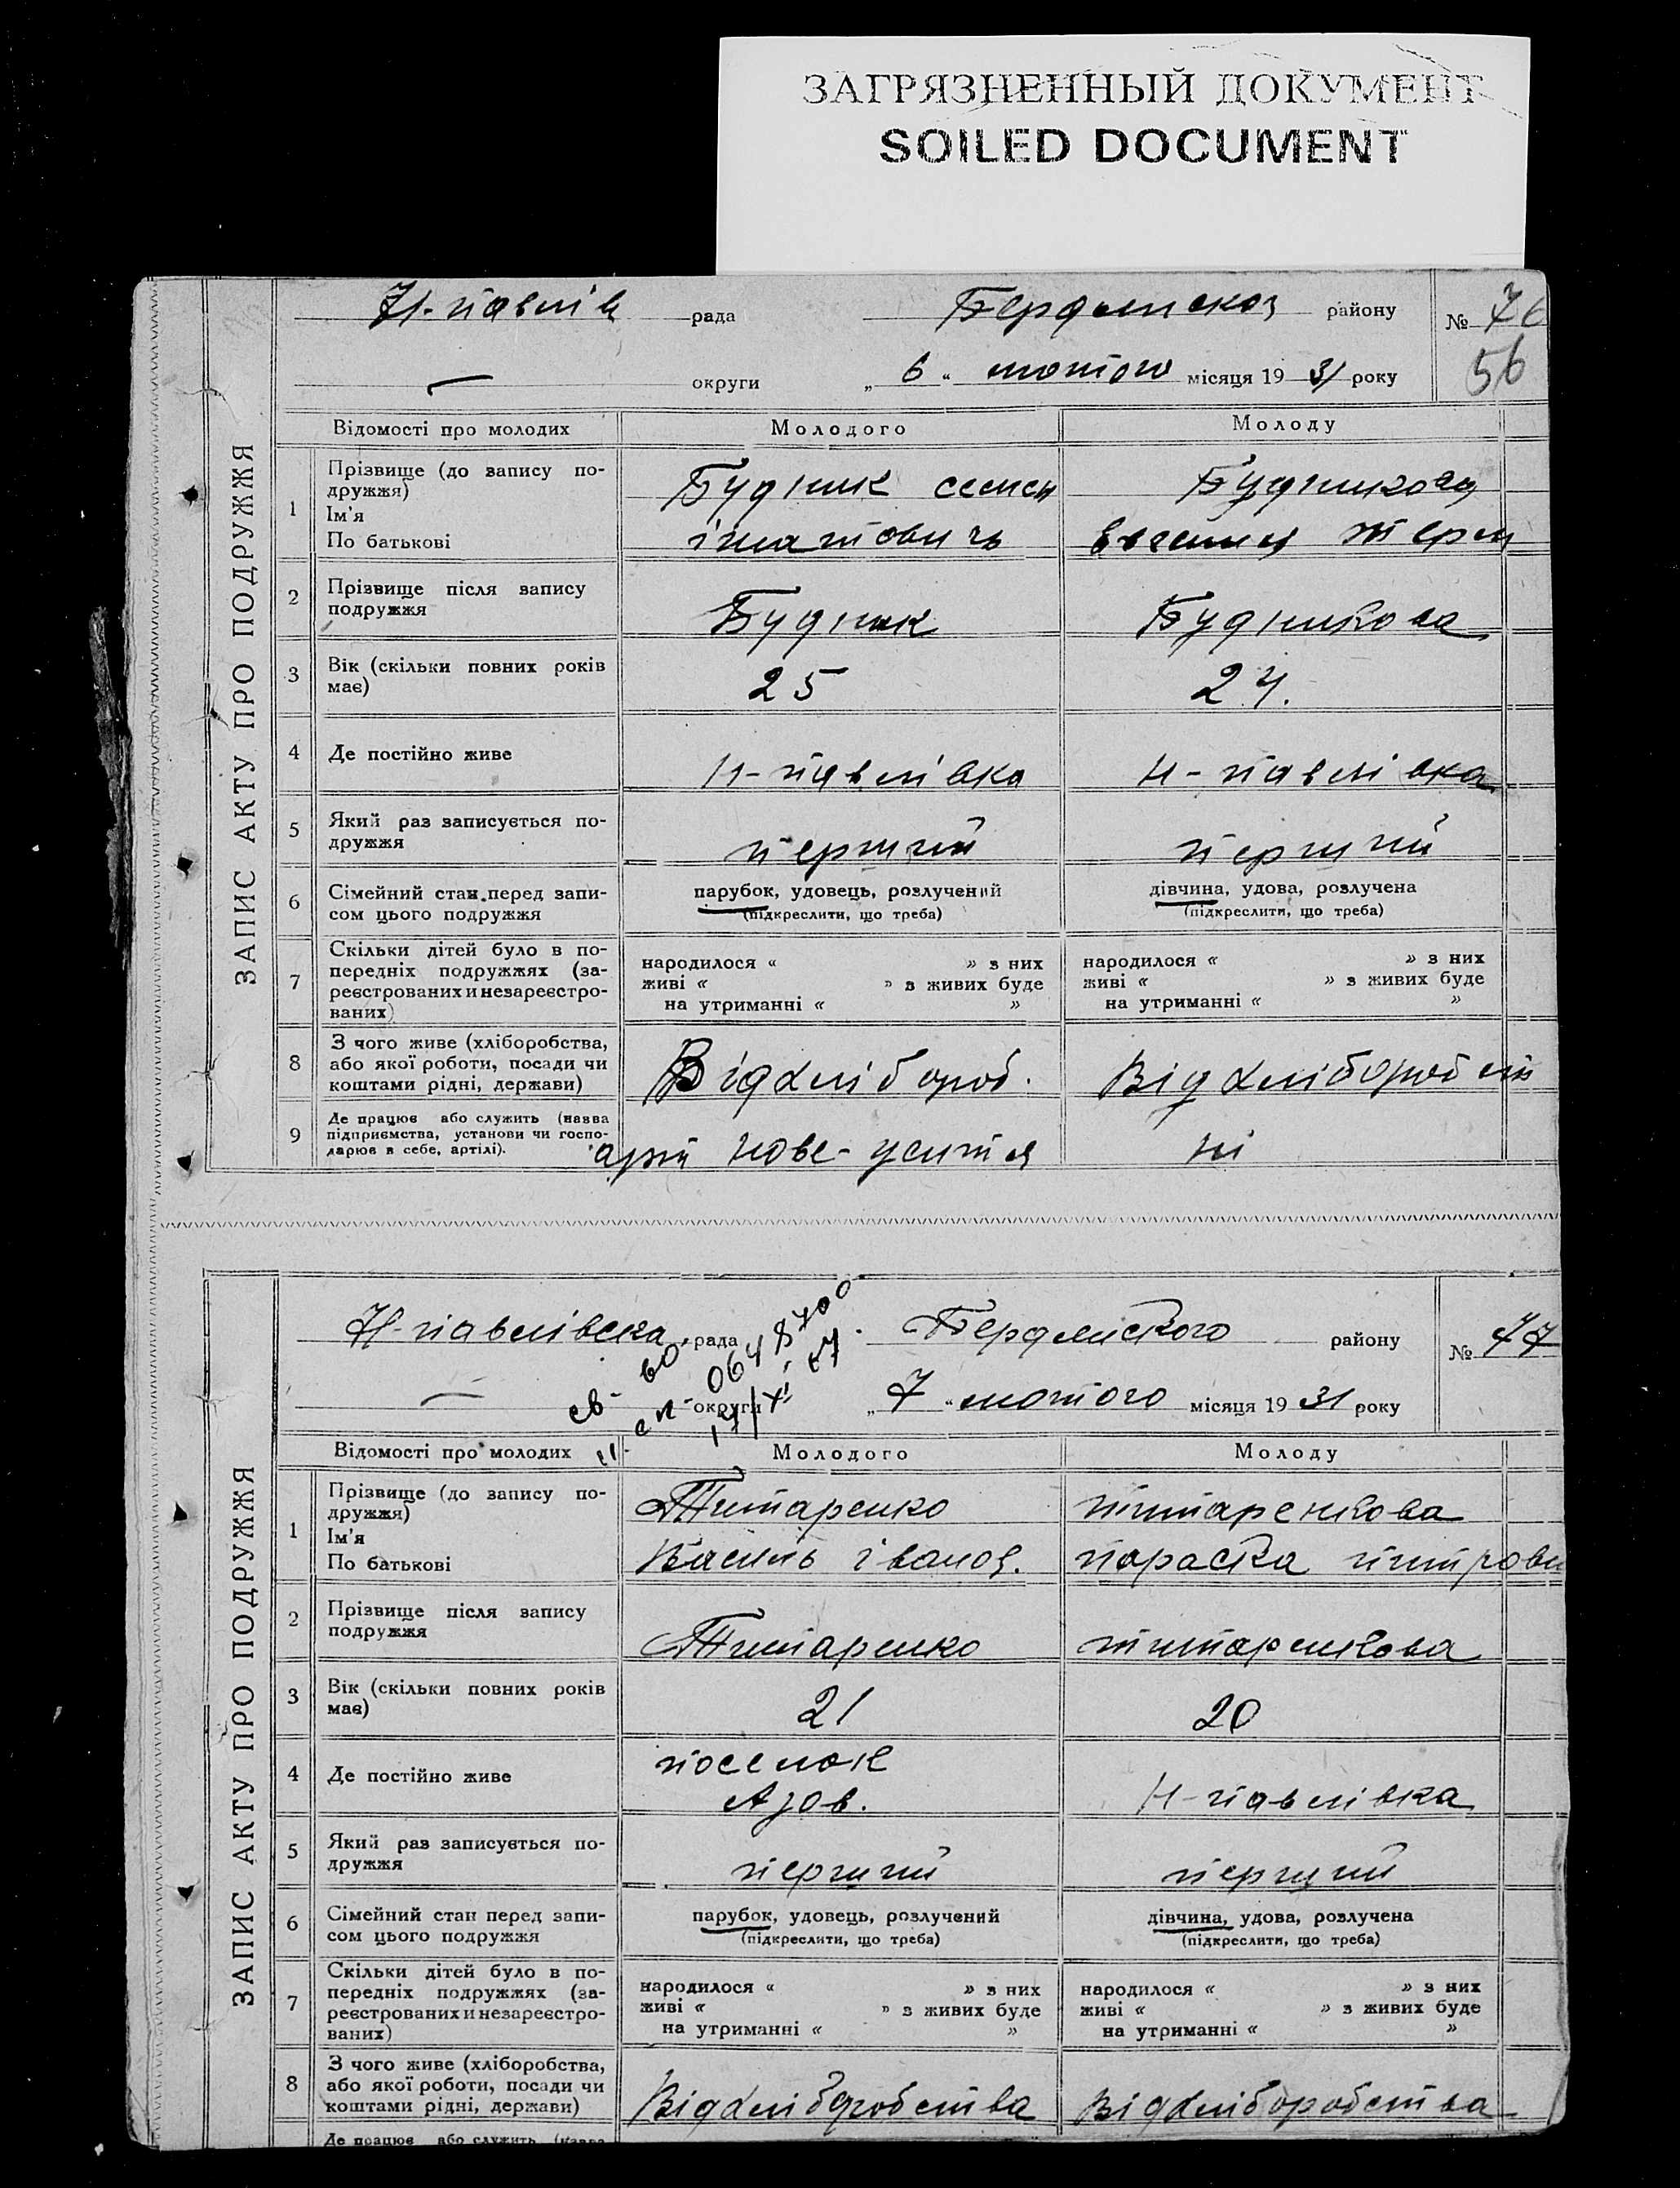 ЗАГРЯЗНЕННЫЙ ДОКУМЕНТ
SOILED DOCUMENT
ЗАПИС АКТУ ПРО ПОДРУЖЖЯ
Н-павлів рада Бердянског району № 76
— округи „ 6 “ лютого місяця 19 31 року 56
Відомості про молодих Молодого Молоду
1 Прізвище (до запису по-
дружжя)
Ім'я
По батькові
Будник семен Будникова
ігнатовичь
2 Прізвище після запису
подружжя
Будник Будникова
3 Вік (скільки повних років
має)
25 24.
4 Де постійно живе Н-павлівка Н-павлівка
5 Який раз записується по-
дружжя
перший перший
6 Сімейний стан перед запи-
сом цього подружжя
парубок, удовець, розлучений дівчина, удова, розлучена
(підкреслити, що треба) (підкреслити, що треба)
7 Скільки дітей було в по-
передніх подружжях (за-
реєстрованих и незареєстро-
ваних)
народилося « » з них народилося « » з них
живі « » з живих буде живі « » з живих буде
на утриманні « » на утриманні « »
8 З чого живе (хліборобства,
або якої роботи, посади чи
коштами рідні, держави)
Від хлібороб. Від хлібороб
9 Де працює або служить (назва
підприємства, установи чи госпо-
дарює в себе, артілі).
арт нове- Ні
ЗАПИС АКТУ ПРО ПОДРУЖЖЯ
Н-павлівска рада Бердянского району № 77
— округи „ 7 “ лютого місяця 19 31 року
св- во
0648700
Відомості про молодих Молодого Молоду
1 Прізвище (до запису по-
дружжя)
Ім'я
По батькові
Титаренко титаренкова
Василь іванов. параска
2 Прізвище після запису
подружжя
Титаренко титаренкова
3 Вік (скільки повних років
має)
21 20
4 Де постійно живе
поселок
Азов. Н-павлівка
5 Який раз записується по-
дружжя
перший перший
6 Сімейний стан перед запи-
сом цього подружжя
парубок, удовець, розлучений дівчина, удова, розлучена
(підкреслити, що треба) (підкреслити, що треба)
7 Скільки дітей було в по-
передніх подружжях (за-
реєстрованих и незареєстро-
ваних)
народилося « » з них народилося « » з них
живі « » з живих буде живі « » з живих буде
на утриманні « » на утриманні « »
8 З чого живе (хліборобства,
або якої роботи, посади чи
коштами рідні, держави)
Від хліборобства Від хліборобства
Де працює або служить (назва